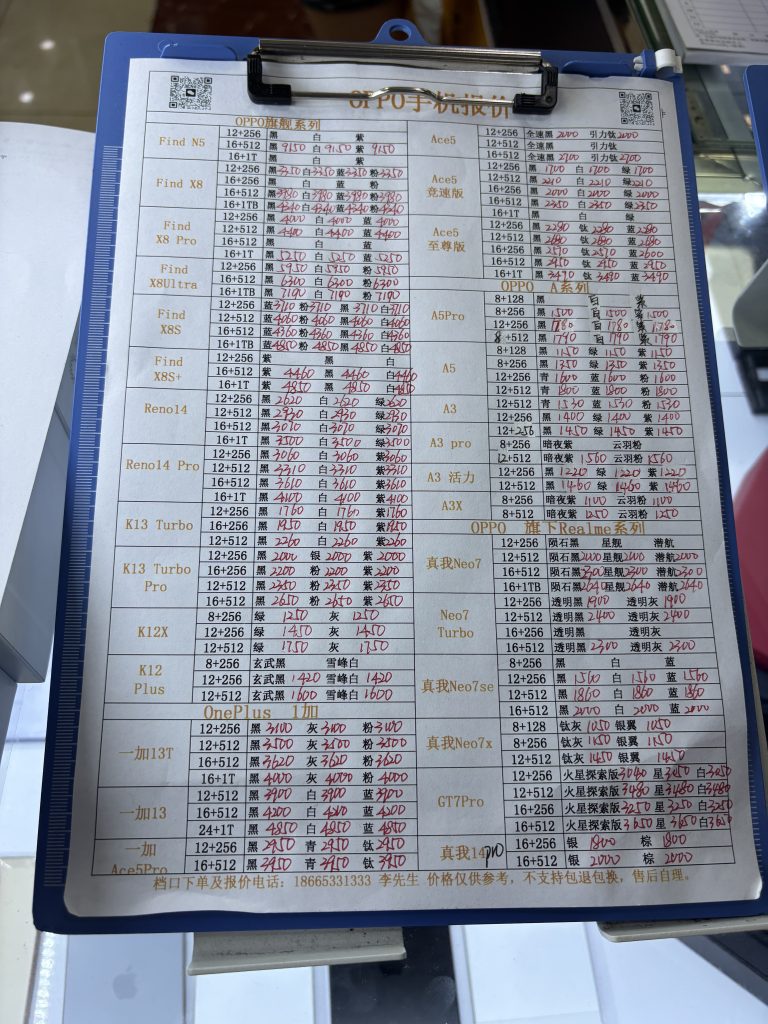 OPPO手机报价
OPPO旗舰系列
Find N5
12+256 黑 白 紫
16+512 黑 9150 白 9150 紫 9150
16+1T 黑 白 紫
Find X8
12+256 黑 3350 白 3350 蓝 3350 粉 3350
16+256 黑 白 蓝 粉
16+512 黑 3980 白 3980 蓝 3980 粉 3980
16+1TB 黑 4340 白 4340 蓝 4340 粉 4340
Find X8 Pro
12+256 黑 4000 白 4000 蓝 4000
12+512 黑 4400 白 4400 蓝 4400
16+512 黑 白 蓝
16+1T 黑 5250 白 5250 蓝 5250
Find X8Ultra
12+256 黑 5950 白 5950 粉 5950
16+512 黑 6300 白 6300 粉 6300
16+1TB 黑 7190 白 7190 粉 7190
Find X8S
12+256 蓝 3710 粉 3710 黑 3710 白 3710
12+512 蓝 4060 粉 4060 黑 4060 白 4060
16+512 蓝 4360 粉 4360 黑 4360 白 4360
16+1TB 蓝 4850 粉 4850 黑 4850 白 4850
Find X8S+
12+256 紫 黑 白
16+512 紫 4460 黑 4460 白 4460
16+1T 紫 4850 黑 4850 白 4850
Reno14
12+256 黑 2620 白 2620 绿 2620
12+512 黑 2930 白 2930 绿 2930
16+512 黑 3070 白 3070 绿 3070
16+1T 黑 3500 白 3500 绿 3500
Reno14 Pro
12+256 黑 3060 白 3060 紫 3060
12+512 黑 3310 白 3310 紫 3310
16+512 黑 3610 白 3610 紫 3610
16+1T 黑 4100 白 4100 紫 4100
K13 Turbo
12+256 黑 1760 白 1760 紫 1760
16+256 黑 1950 白 1950 紫 1950
12+512 黑 2260 白 2260 紫 2260
K13 Turbo Pro
12+256 黑 2000 银 2000 紫 2000
16+256 黑 2200 粉 2200 紫 2200
12+512 黑 2350 粉 2350 紫 2350
16+512 黑 2650 粉 2650 紫 2650
K12X
8+256 绿 1250 灰 1250
12+256 绿 1450 灰 1450
12+512 绿 1750 灰 1750
K12 Plus
8+256 玄武黑 雪峰白
12+256 玄武黑 1420 雪峰白 1420
12+512 玄武黑 1600 雪峰白 1600
OnePlus 1加
一加13T
12+256 黑 3100 灰 3100 粉 3100
12+512 黑 3500 灰 3500 粉 3500
16+512 黑 3620 灰 3620 粉 3620
16+1T 黑 4000 灰 4000 粉 4000
一加13
12+512 黑 3900 白 3900 蓝 3900
16+512 黑 4200 白 4200 蓝 4200
24+1T 黑 4850 白 4850 蓝 4850
一加 Ace5Pro
12+256 黑 2450 青 2450 钛 2450
16+512 黑 3150 青 3150 钛 3150
Ace5
12+256 全速黑 2000 引力钛 2000
12+512 全速黑 引力钛
16+512 全速黑 2700 引力钛 2700
Ace5 竞速版
12+256 黑 1700 白 1700 绿 1700
12+512 黑 2210 白 2210 绿 2210
16+256 黑 2000 白 2000 绿 2000
16+512 黑 2350 白 2350 绿 2350
16+1T 黑 白 绿
Ace5 至尊版
12+256 黑 2280 钛 2280 蓝 2280
12+512 黑 2680 钛 2680 蓝 2680
16+256 黑 2570 钛 2570 蓝 2600
16+512 黑 2950 钛 2950 蓝 2950
16+1T 黑 3490 钛 3490 蓝 3490
OPPO A系列
A5Pro
8+128 黑 白 紫
8+256 黑 1500 白 1500 紫 1500
12+256 黑 1780 白 1780 紫 1780
8+512 黑 1790 白 1790 紫 1790
A5
8+128 黑 1150 绿 1150 紫 1150
8+256 黑 1350 绿 1350 紫 1350
12+256 青 1600 蓝 1600 粉 1600
12+512 青 1800 蓝 1800 粉 1800
A3
12+512 青 1530 蓝 1530 粉 1530
12+256 黑 1400 绿 1400 紫 1400
12+256 黑 1450 绿 1450 紫 1450
A3 pro
8+256 暗夜紫 云羽粉
12+512 暗夜紫 1560 云羽粉 1560
A3 活力
12+256 黑 1220 绿 1220 紫 1220
12+512 黑 1460 绿 1460 紫 1460
A3X
8+256 暗夜紫 1100 云羽粉 1100
8+512 暗夜紫 1250 云羽粉 1250
OPPO 旗下Realme系列
真我Neo7
12+256 陨石黑 星舰 潜航
12+512 陨石黑 2000 星舰 2000 潜航 2000
16+512 陨石黑 2300 星舰 2300 潜航 2300
16+1TB 陨石黑 2640 星舰 2640 潜航 2640
Neo7 Turbo
12+256 透明黑 1900 透明灰 1900
12+512 透明黑 2400 透明灰 2400
16+256 透明黑 透明灰
16+512 透明黑 2300 透明灰 2300
真我Neo7se
8+256 黑 白 蓝
12+256 黑 1560 白 1560 蓝 1560
12+512 黑 1860 白 1860 蓝 1860
16+512 黑 2000 白 2000 蓝 2000
真我Neo7x
8+128 钛灰 1050 银翼 1050
8+256 钛灰 1150 银翼 1150
12+512 钛灰 1450 银翼 1450
GT7Pro
12+256 火星探索版 3040 星 3050 白 3050
12+512 火星探索版 3480 星 3480 白 3480
16+256 火星探索版 3250 星 3250 白 3250
16+512 火星探索版 3650 星 3650 白 3650
真我14 pro
16+256 银 1800 棕 1800
16+512 银 2000 棕 2000
档口下单及报价电话：18665331333 李先生 价格仅供参考，不支持包退包换，售后自理。